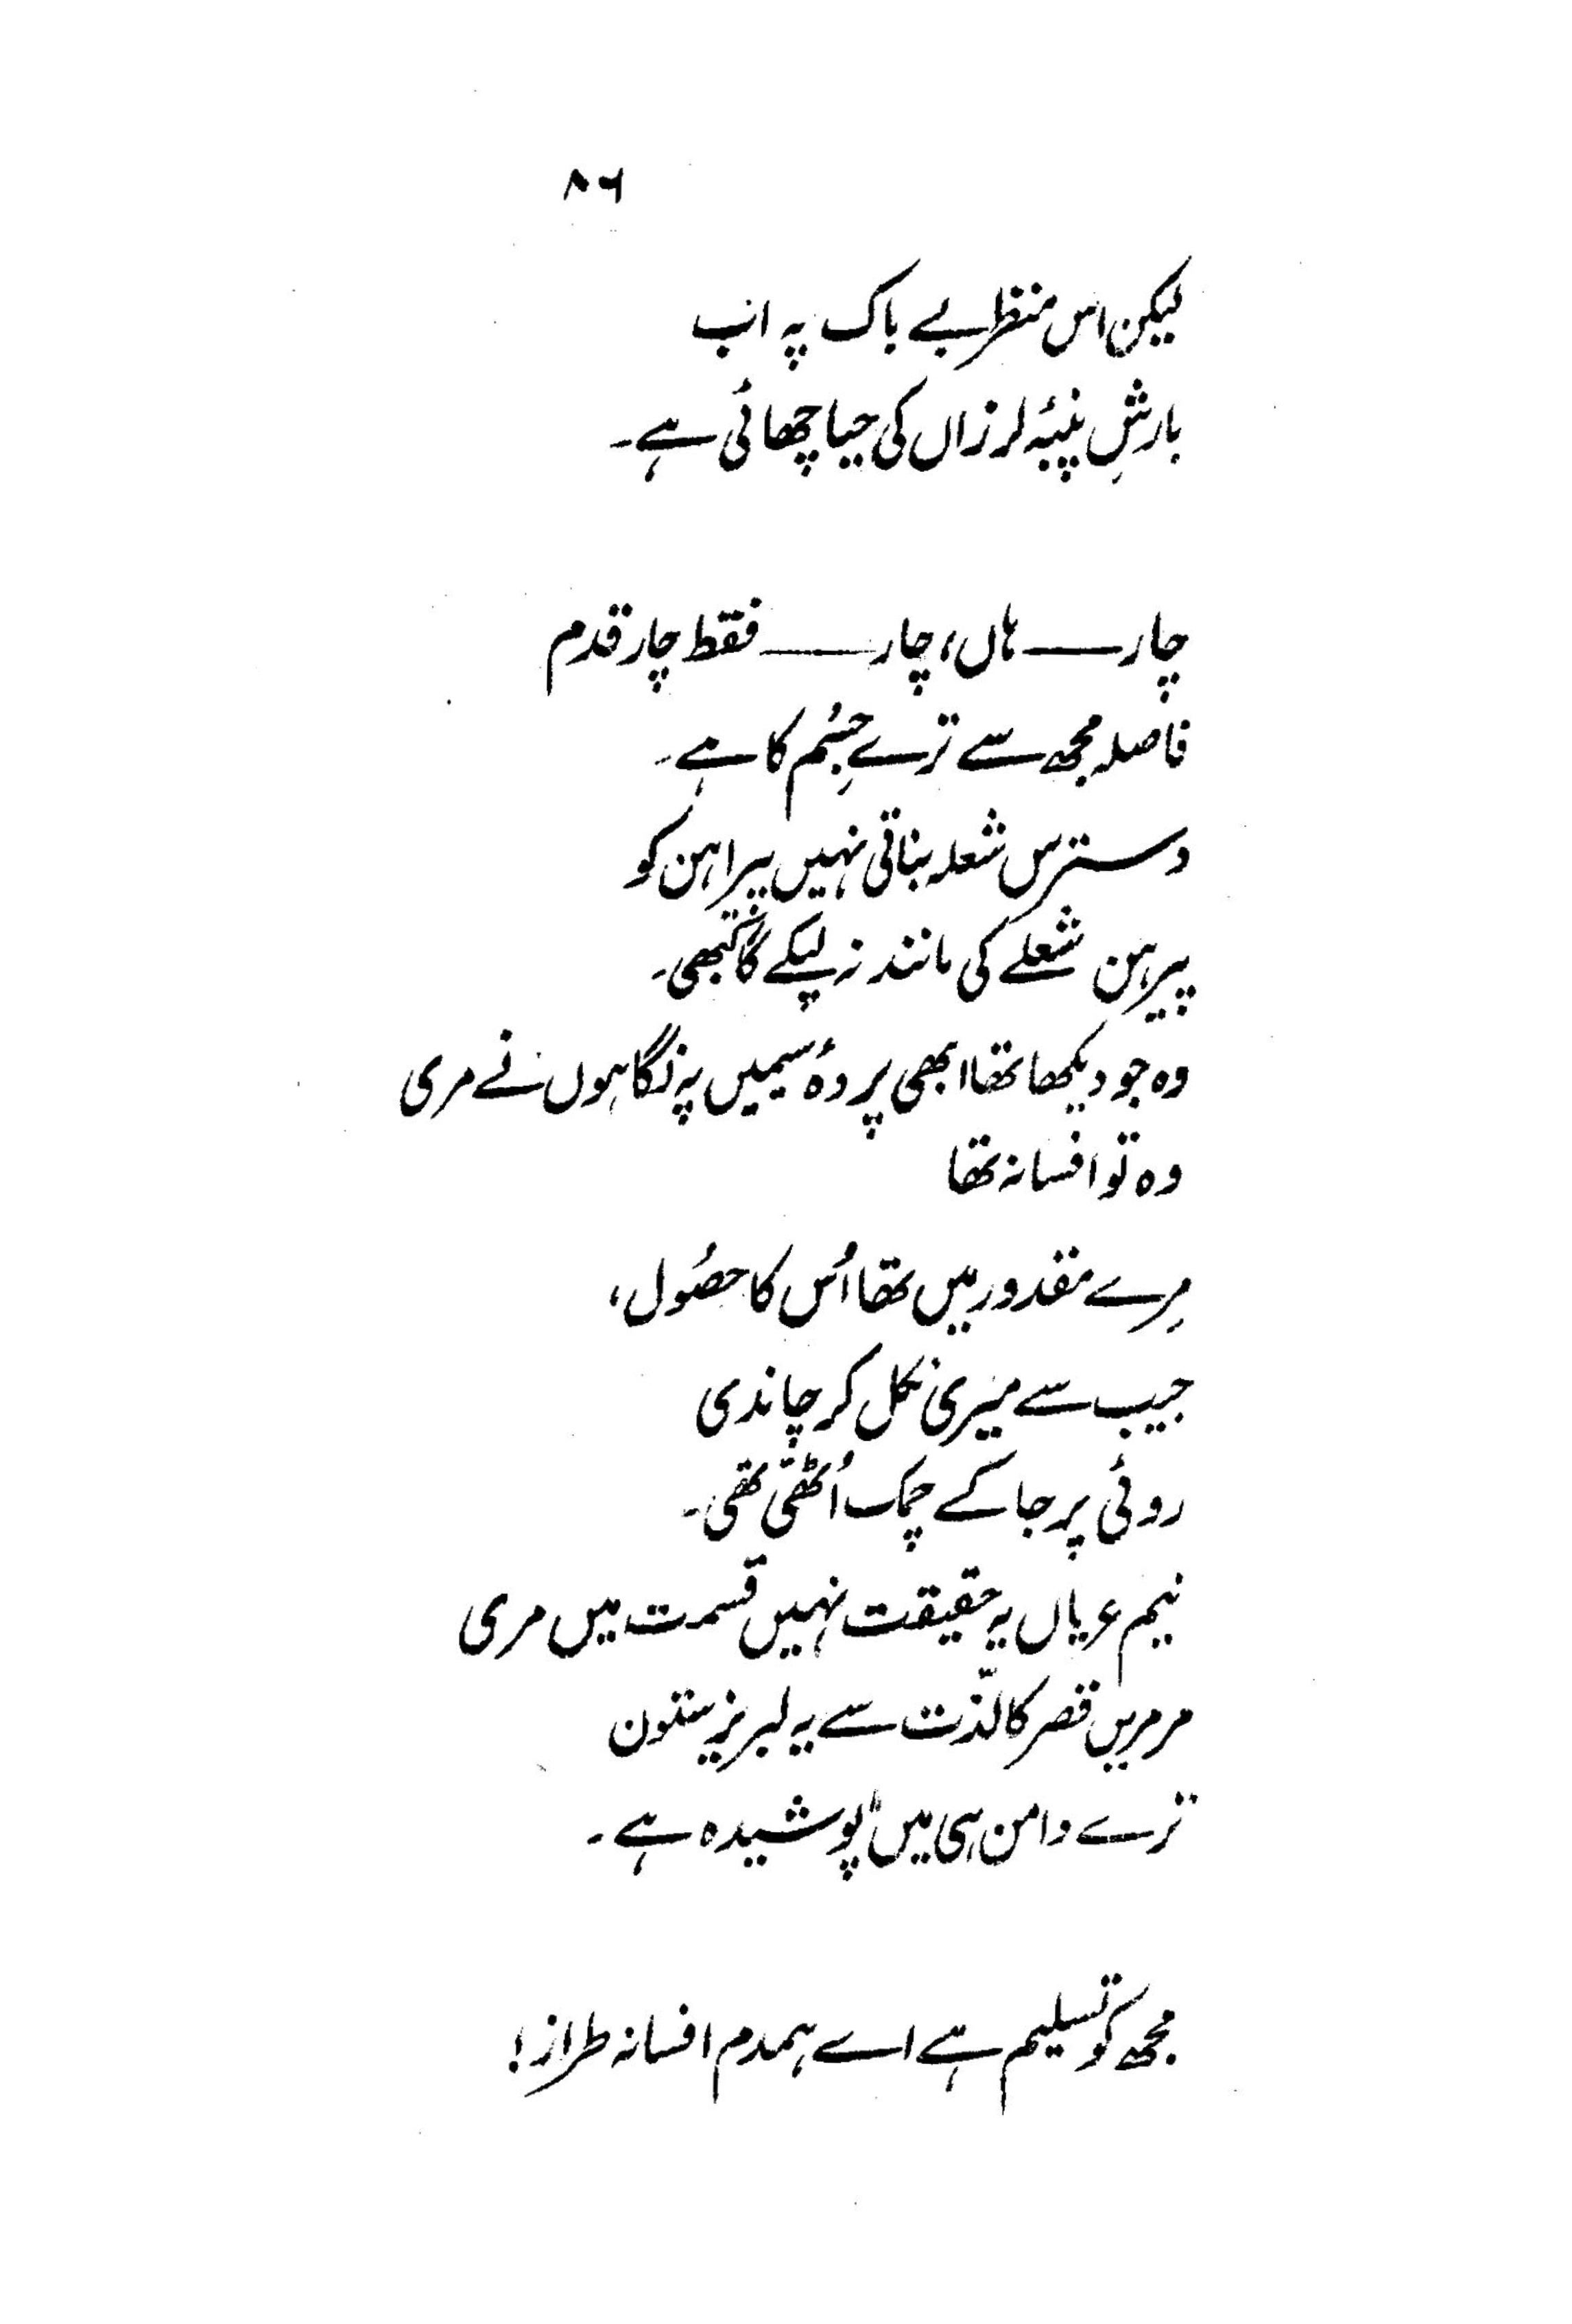 ۸۶
لیکن اس منظرِ بے باک پہ اب
بارشِ پنبۂ لرزاں کی حیا چھائی ہے۔
چار ــــ ہاں، چار ــــ فقط چار قدم
فاصلہ مجھ سے ترے جِسُم کا ہے۔
دسترس شعلہ بناتی نہیں پیراہن کو
پیرہن شعلے کی مانند نہ لپکے گا کبھی۔
وہ جو دیکھا تھا ابھی پردۂ سیمیں پہ نگاہوں نے مری
وہ تو افسانہ تھا
مِرے مقدور میں تھا اُس کا حصُول،
جیب سے میری نکل کر چاندی
روئی پر جا کے چمک اُٹھتی تھی۔
نیم عریاں یہ حقیقت نہیں قسمت میں مری
مرمریں قصر کا لذّت سے یہ لبریز ستون
ترے دامن ہی میں پوشیدہ ہے۔
مجھ کو تسلیم ہے اے ہمدم افسانہ طراز!